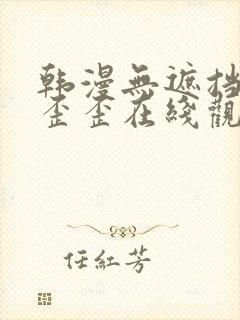 韩漫無遮挡
歪歪在綫觀
任紅芳